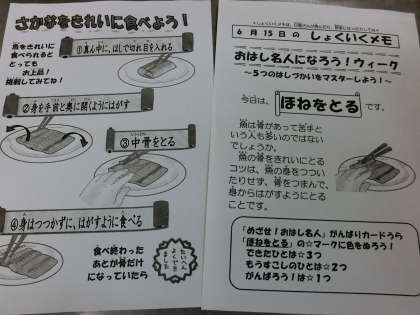 さかなをきれいに食べよう！
魚をきれいに
食べられると
とっても
お上品！
挑戦してみてね！
①真ん中に、はしで切れ目を入れる
②身を手前と奥に開くようにはがす
③中骨をとる
④身はつつかずに、はがすように食べる
食べ終わった
あとが骨だけ
になっていたら
たいへん
よくでき
ました
6月15日の しょくいくメモ
おはし名人になろう！ウィーク
～５つのはしづかいをマスターしよう！～
今日は、ほねをとる です。
魚は骨があって苦手と
いう人も多いのではない
でしょうか。
魚の骨をきれいにとる
コツは、魚の身をつつい
たりせず、骨をつまんで、
身からはがすようにとる
ことです。
「めざせ！おはし名人」がんばりカードうら
「ほねをとる」の☆マークに色をぬろう！
できたひとは☆３つ
もうすこしのひとは☆２つ
がんばろう！は☆１つ